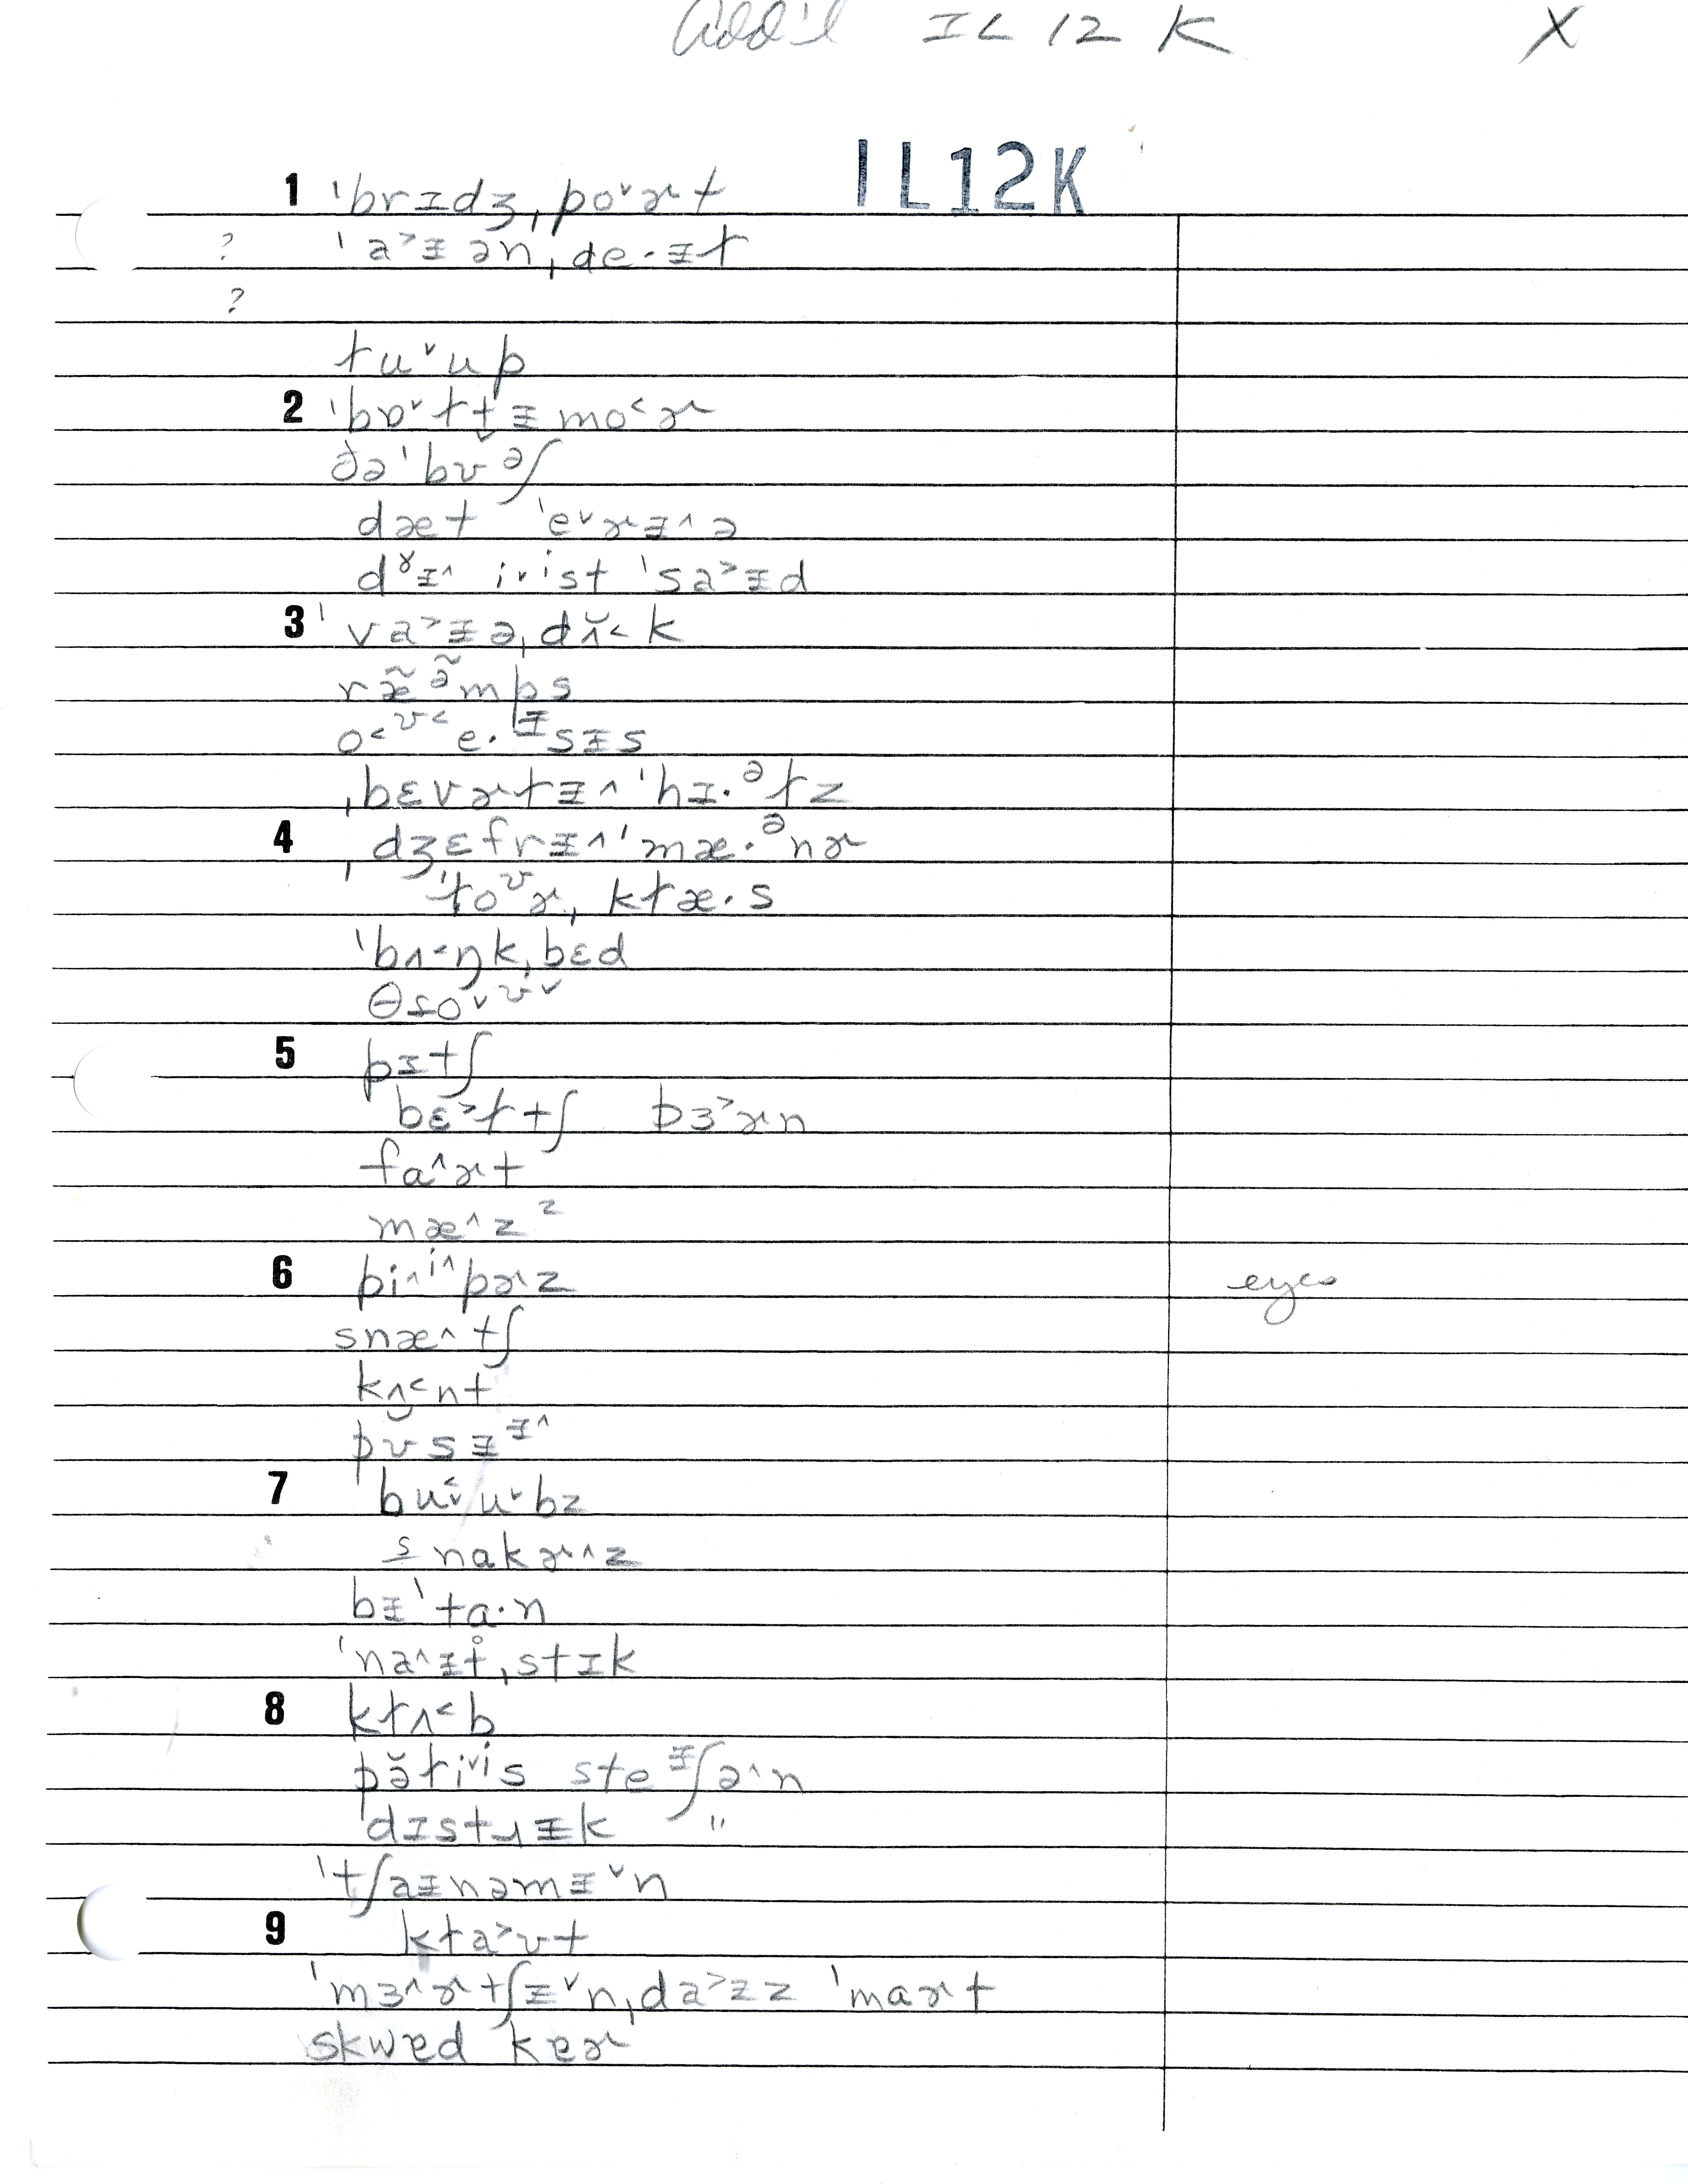 Add'l IL 12 K X
IL12K
1 ˈbrɪdʒˌpo˅ɚt
? ˈa˃ɨənˌde·ɨt
?
ɫu˅up
2 ˈbɒ˅ɫtɨmo˂ɚ
ðəˈbʊ̌ᵊʃ
dæt ˈe˅ɚɨ˄ə
dˠɨ˄ i˅ⁱst ˈsa˃ɨd
3 ˈva˃ɨəˌdʌ̆˂k
ræ̃ə̃mps
o˂ᶷ˂e·ᶤsɨs
ˌbɛvɚɫɨ˄ˈhɪ·ᵊɫz
4 ˌdʒɛfrɨ˄ˈmæ·ᵊnɚ
ˈɫoᶷɚˌkɫæ·s
ˈbʌ˂ŋkˌbɛd
θɹo˅ᶷ˅
5 pɪtʃ
bɛ˃ɫtʃ pɜ˃ɚn
fa˄ɚt
mæ˄zᶻ
6 pi˄ⁱ˄pɚz eyes
snæ˄tʃ
kʌ˂nt
pʊ̆sɨᶤ˄
7 bu˂˅u˅bz
snakɚ˄z
bɨˈta·n
ˈna˄ɨt̊ˌstɪk
8 kɫʌ˂b
pə̆ɫi˅ⁱs steᶤʃə˄n
dɪstɹɨk "
ˈtʃaɨnəmɨ˅n
9 kɫa˃ʊt
ˈmɜ˄ɚtʃɨ˅nˌda˃ɨz ˈmaɚt
skwɐd kɐɚ